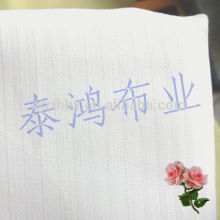 泰鸿布业